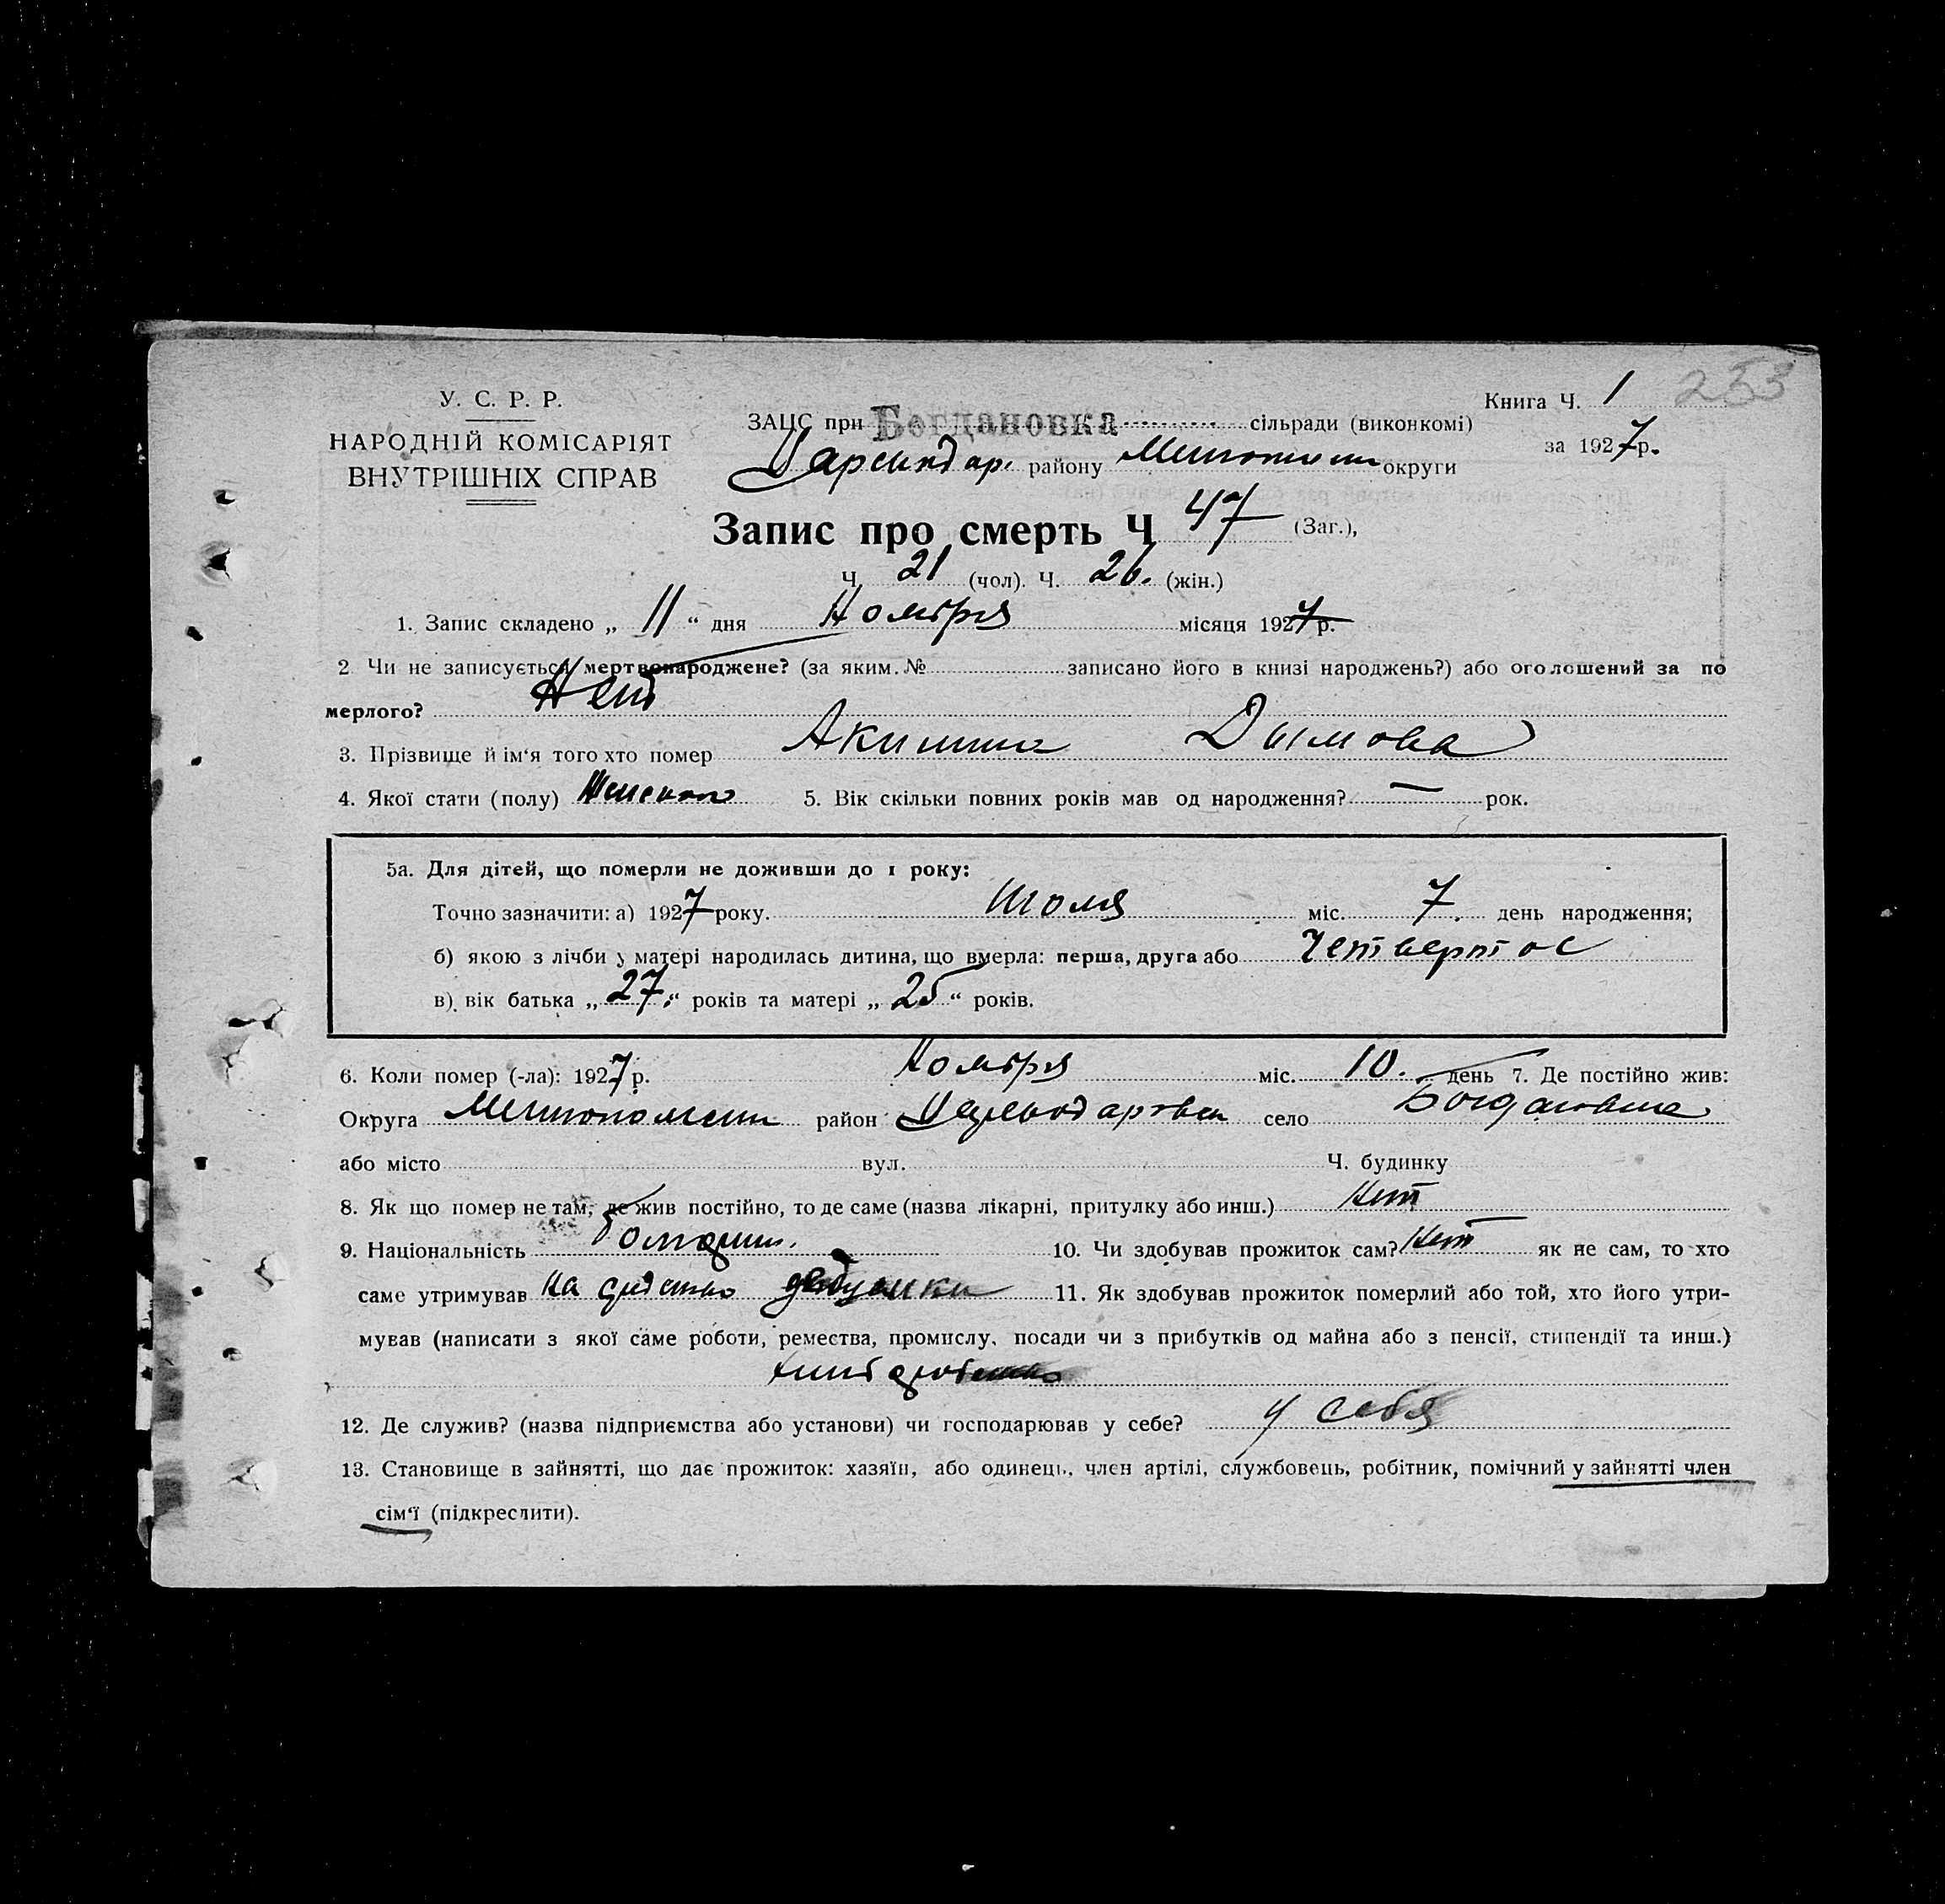 У. С. Р. Р.
НАРОДНІЙ КОМІСАРІЯТ
ВНУТРІШНІХ СПРАВ
Книга Ч. 1 253
за 1927 р.
ЗАЦС при Богдановка сільради (виконкомі)
району округи
Запис про смерть Ч 47 (Заг.),
Ч. 21 (чол). Ч. 26. (жін.)
1. Запис складено „ 11 “ дня Ноября місяця 1927 р.
2 Чи не записується мертвонароджене? (за яким № записано його в книзі народжень?) або оголошений за по
мерлого? Нет
3. Прізвище й ім‘я того хто помер Акилина Дымова
4. Якої стати (полу) Женского 5. Вік скільки повних років мав од народження? — рок.
5а. Для дітей, що померли не доживши до 1 року:
Точно зазначити: а) 1927 року. Июля міс. 7. день народження;
б) якою з лічби у матері народилась дитина, що вмерла: перша, друга або Четвертое
в) вік батька „ 27 “ років та матері „ 25 “ років.
6. Коли помер (-ла): 1927 р. Ноября міс. 10. день 7. Де постійно жив:
Округа район село Богдановка
або місто вул. Ч. будинку
8. Як що помер не там, де жив постійно, то де саме (назва лікарні, притулку або инш.) Нет
9. Національність 10. Чи здобував прожиток сам? Нет як не сам, то хто
саме утримував На дедушки 11. Як здобував прожиток померлий або той, хто його утри-
мував (написати з якої саме роботи, ремества, промислу, посади чи з прибутків од майна або з пенсії, стипендії та инш.)
12. Де служив? (назва підприємства або установи) чи господарював у себе? у себя
13. Становище в зайнятті, що дає прожиток: хазяїн, або одинець, член артілі, службовець, робітник, помічний у зайнятті член
сім‘ї (підкреслити).